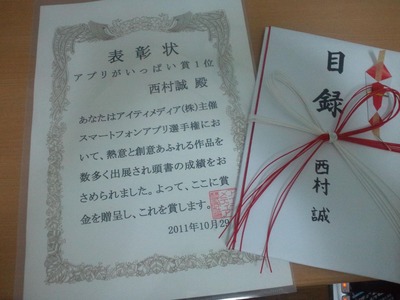 表彰状
アプリがいっぱい賞1位
西村誠 殿
あなたはアイティメディア(株)主催
スマートフォンアプリ選手権にお
いて、熱意と創意あふれる作品を
数多く出展され頭書の成績をお
さめられました。よって、ここに賞
金を贈呈し、これを賞します。
2011年10月29
目録
西村 誠